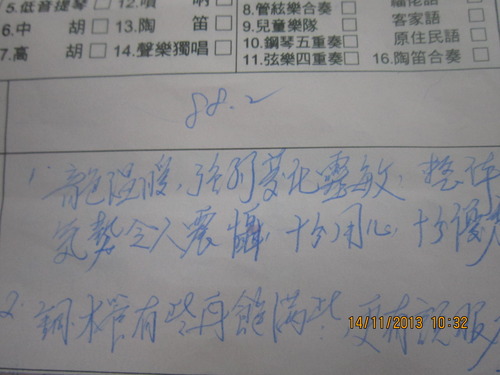 5.低音提琴□ 12.噴 吶□ 8.管絃樂合奏□ 福佬語
6.中 胡□ 13.陶 笛□ 9.兒童樂隊□ 客家語
7.高 胡□ 14.聲樂獨唱□ 10.鋼琴五重奏□ 原住民語
11.弦樂四重奏□ 16.陶笛合奏□
88.2
1. 音色溫暖,強弱變化靈敏,整体
氣勢令人震懾,十分用心,十分優
2. 銅.木管有些再飽滿些.更有說服
14/11/2013 10:32